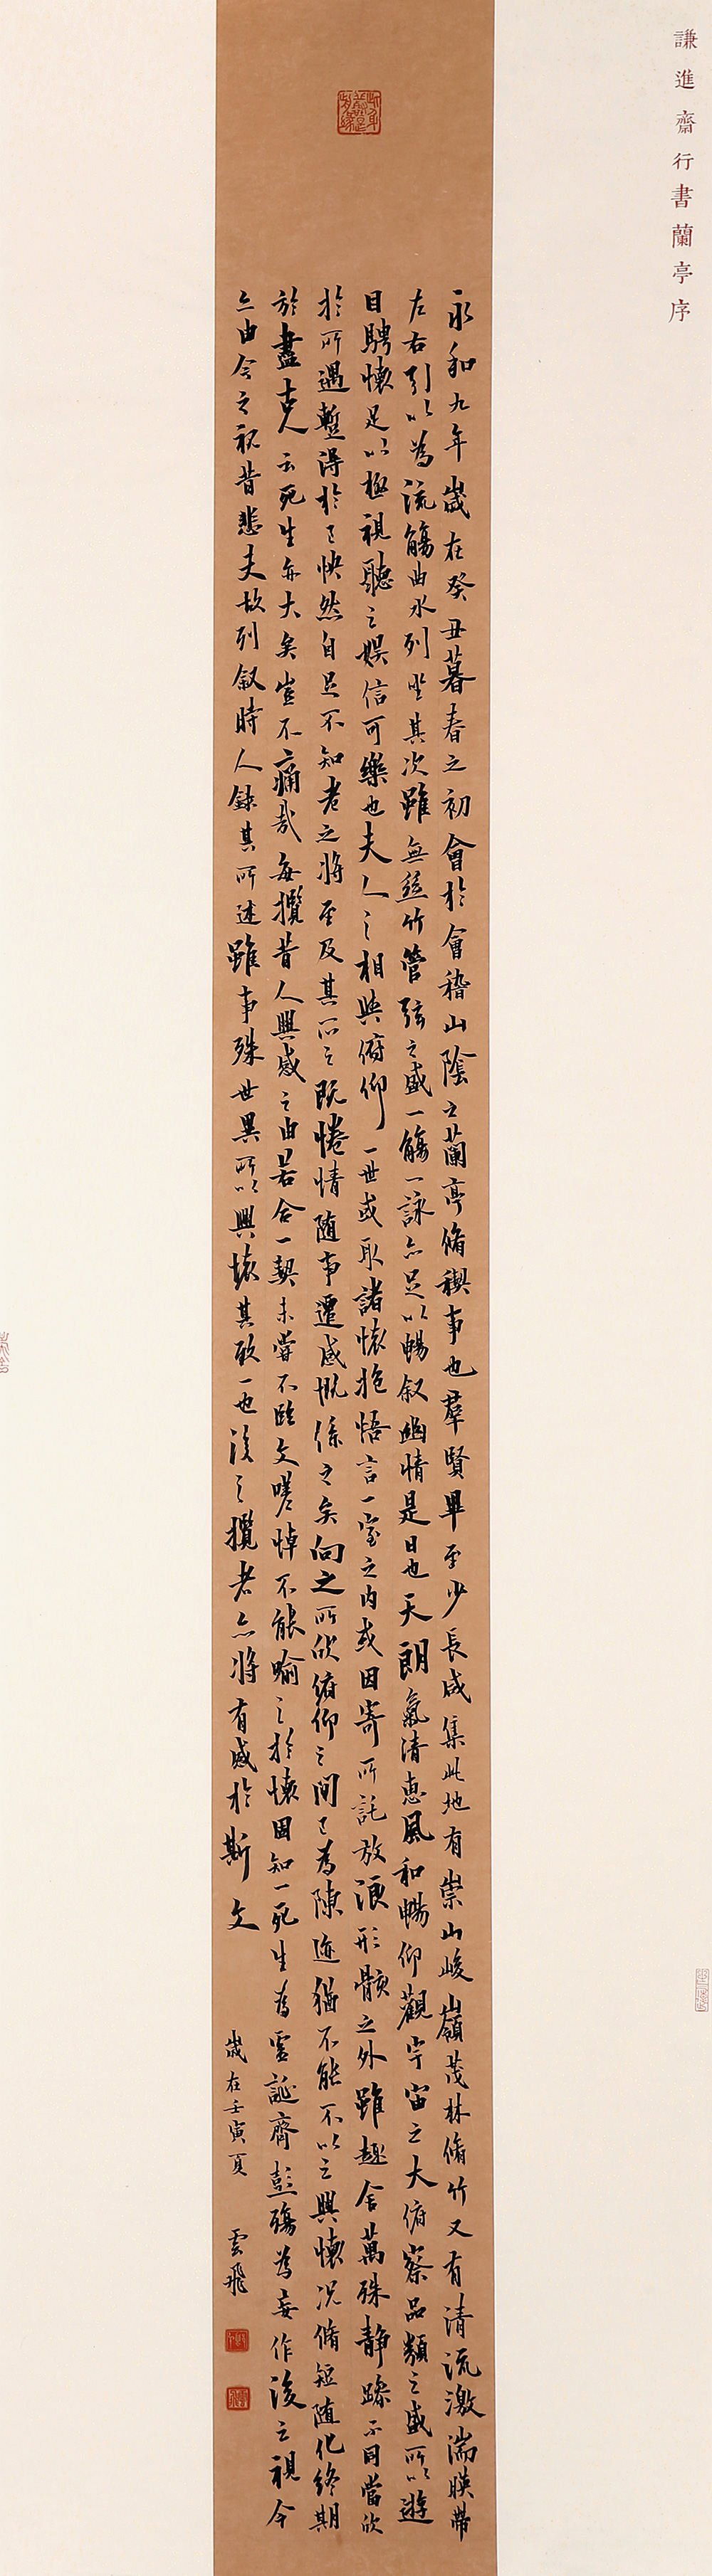 謙進齋行書蘭亭序
永和九年歲在癸丑暮春之初會於會稽山陰之蘭亭脩稧事也羣賢畢至少長咸集此地有崇山峻嶺茂林脩竹又有清流激湍暎帶
左右引以為流觴曲水列坐其次雖無絲竹管弦之盛一觴一詠亦足以暢叙幽情是日也天朗氣清惠風和暢仰觀宇宙之大俯察品類之盛所以遊
目騁懷足以極視聽之娛信可樂也夫人之相與俯仰一世或取諸懷抱悟言一室之內或因寄所託放浪形骸之外雖趣舍萬殊靜躁不同當欣
於所遇蹔得於己怏然自足不知老之將至及其所之既惓情隨事遷感慨係之矣向之所欣俯仰之間已為陳迹猶不能不以之興懷況脩短隨化終期
於盡古人云死生亦大矣豈不痛哉每攬昔人興感之由若合一契未嘗不臨文嗟悼不能喻之於懷固知一死生為虛誕齊彭殤為妄作後之視今
亦由今之視昔悲夫故列叙時人録其所述雖事殊世異所以興懷其致一也後之攬者亦將有感於斯文
歲在壬寅夏 雲飛